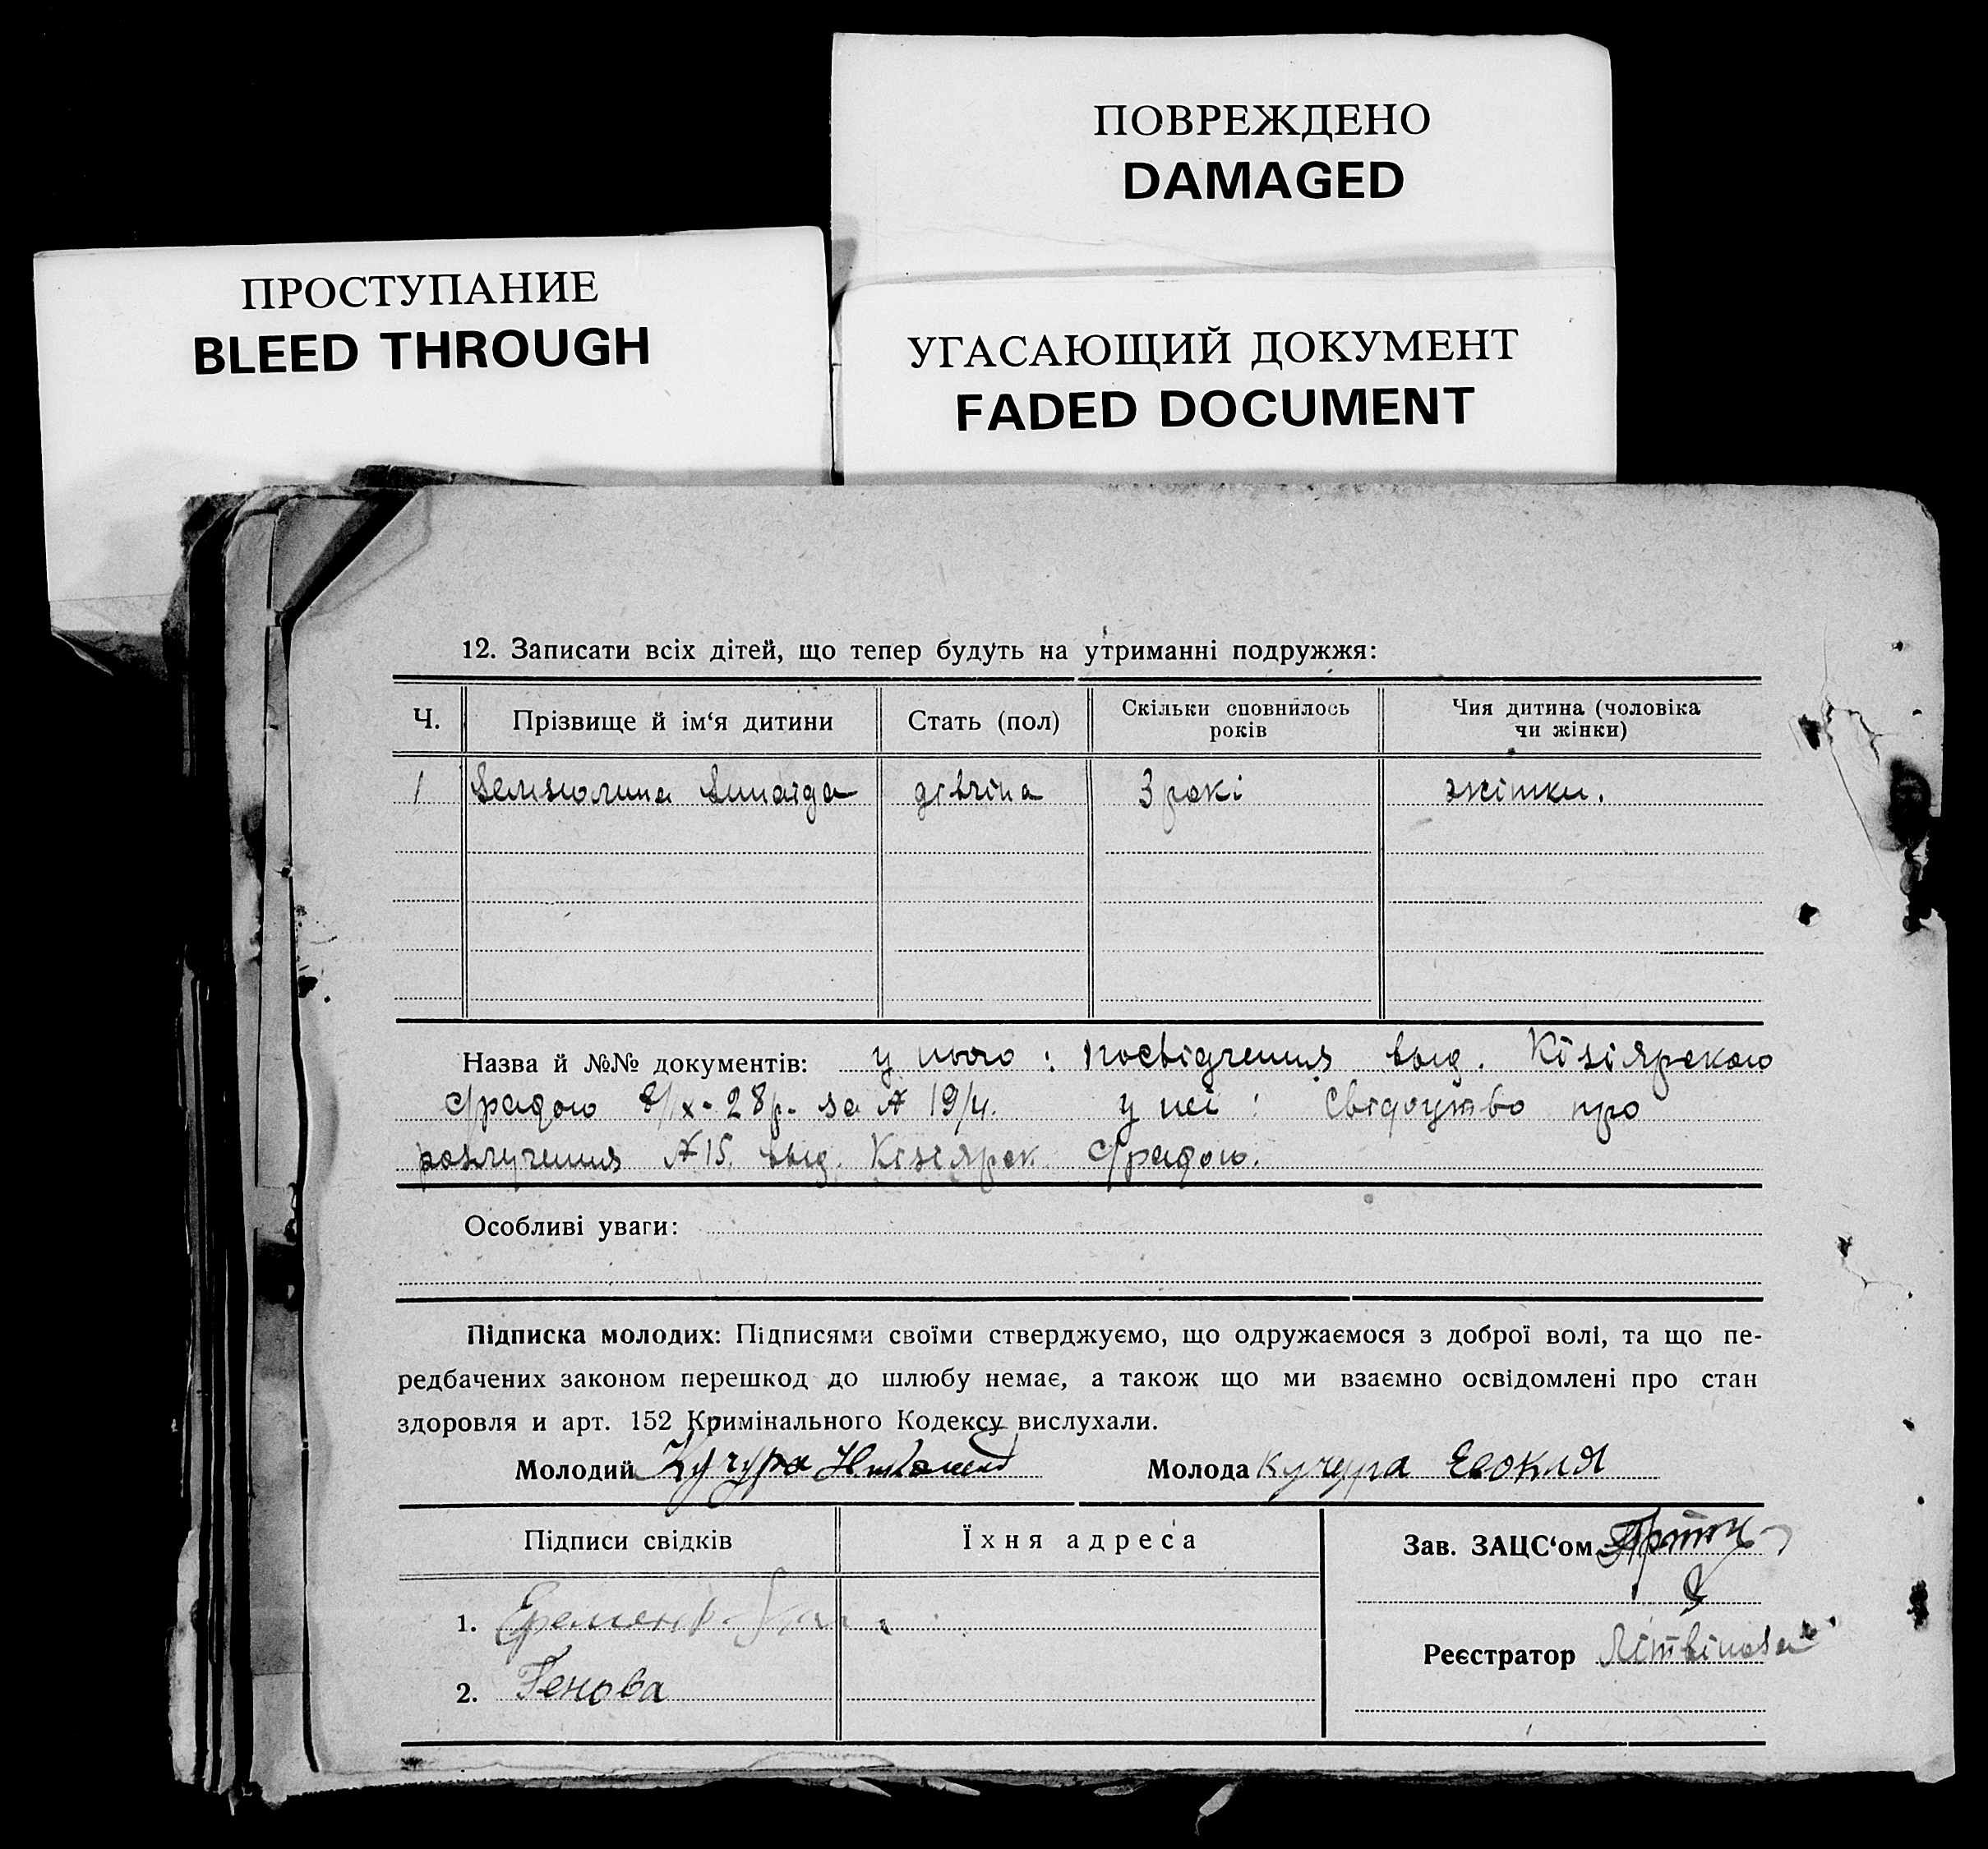 ПОВРЕЖДЕНО
DAMAGED
ПРОСТУПАНИЕ
BLEED THROUGH
УГАСАЮЩИЙ ДОКУМЕНТ
FADED DOCUMENT
12. Записати всіх дітей, що тепер будуть на утриманні подружжя:
Ч. Прізвище й ім‘я дитини Стать (пол) Скільки сповнилось років Чия дитина (чоловіка чи жінки)
1 дівчіна 3 рокі жінки.
Назва й №№ документів: у нього: посвідчення выд. Кізіярскою
с/радою 8/IX-28р. за № 19/4. у неї: свідоцтво про
разлучення №15. выд. Кізіярск. с/радою.
Особливі уваги:
Підписка молодих: Підписями своїми стверджуємо, що одружаємося з доброї волі, та що пе-
редбачених законом перешкод до шлюбу немає, а також що ми взаємно освідомлені про стан
здоровля и арт. 152 Кримінального Кодексу вислухали.
Молодий Кучура Молода Кучура Євокля
Підписи свідків Їхня адреса Зав. ЗАЦС‘ом
1.
Реєстратор Літвінова
2. Генова